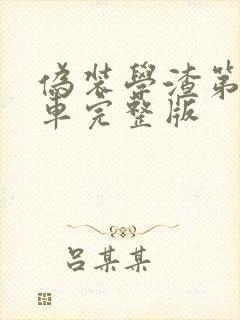 偽裝學渣第
車完整版
吕某某